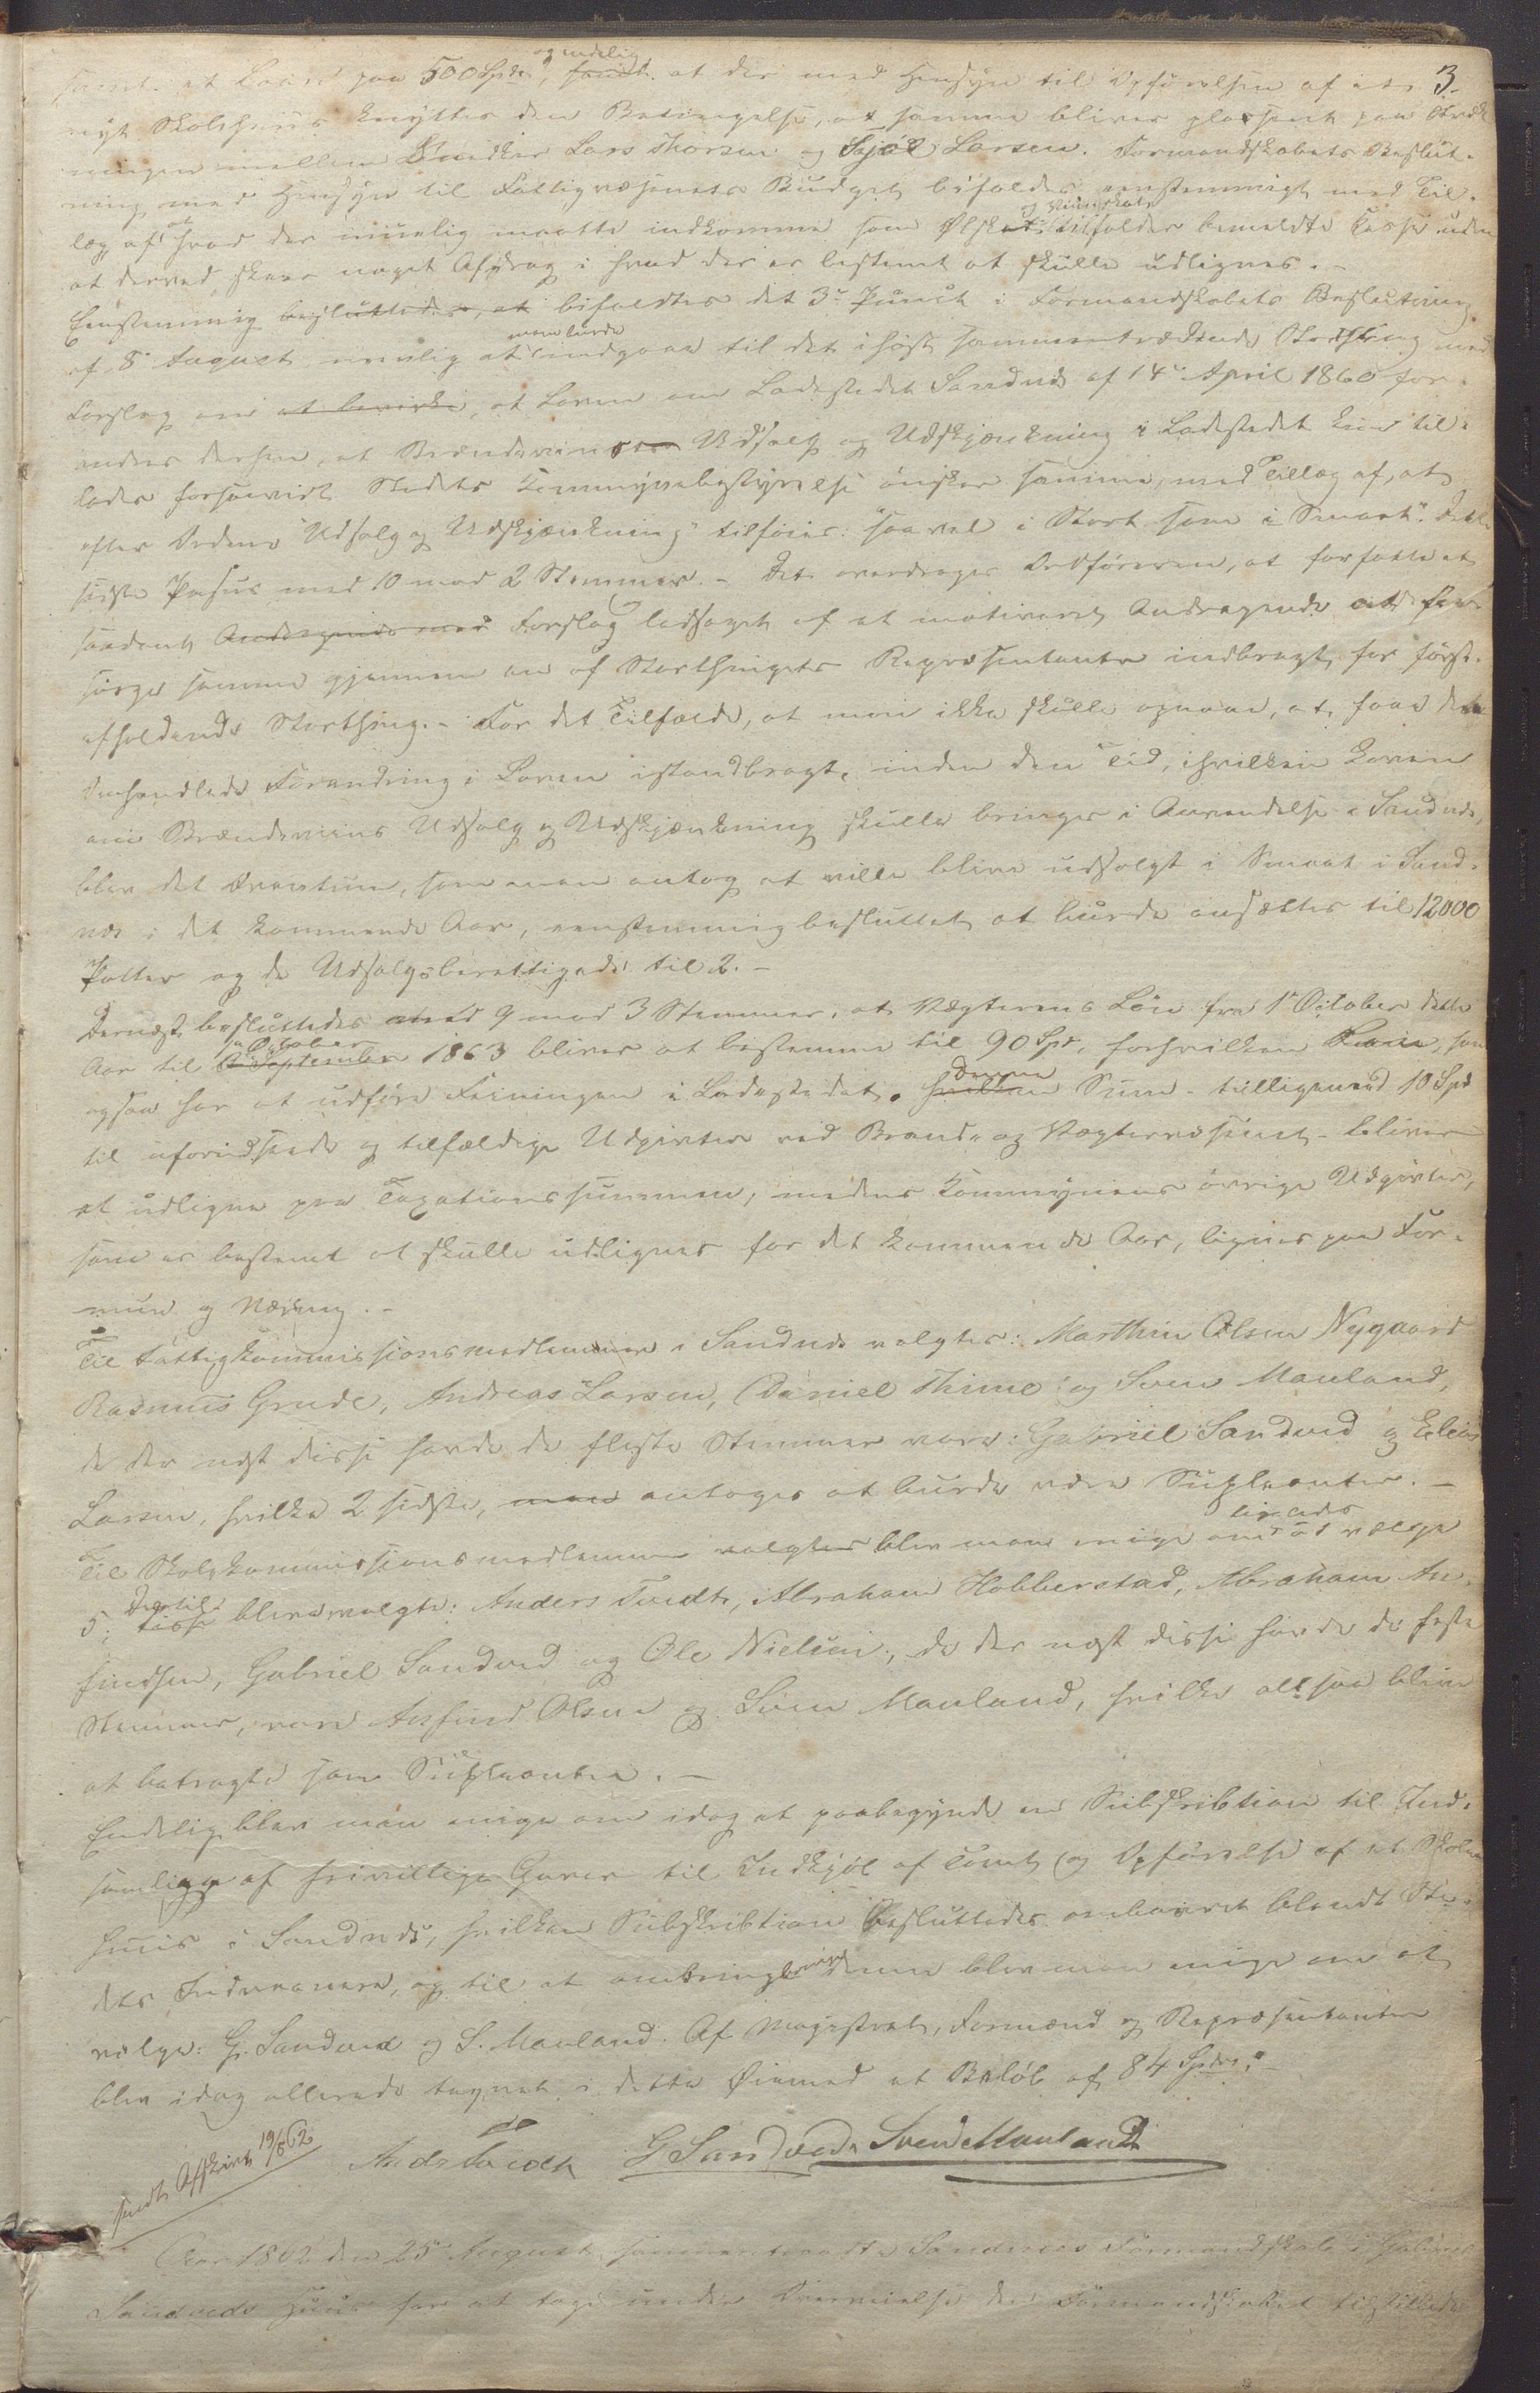 3.
samt et Laan paa 500 Spd, og endelig at der med Hensyn til Opførelsen af et
nyt Skolehuus knyttes den Betingelse, at samme bliver plasseret paa Stræk-
ningen mellem Snedker Lars Thorsen og Kjøl Larsen. Formandskabets Beslut-
ning med Hensyn til Fattigvæsenets Budget bifaldes eenstemmigt med Til-
læg af at hvad der muelig maatte indkomme som Ølskat og Viinskat tilfalder bemeldte Casse uden
at derved skeer noget Afdrag i hvad der er bestemt at skulle udlignes. -
Eenstemmig besluttedes, at bifaldtes det 3die Punct i Formandskabets Beslutning
af 8de August nemlig at man burde indgaae til det i høst sammentrædende Storthing med
Forslag om at bevirke, at Loven om Ladestedet Sandnæs af 14de April 1860 for-
andres derhen, at Brændeviins Udsalg og Udskjænkning i Ladestedet kun til-
lades forsaavidt Stedets Kommunebestyrelse ønsker samme, med Tillæg af, at
efter Ordene "Udsalg og Udskjænkning" tilføies: "saavel i Stort som i Smaat". Dette
sidste Passus med 10 mod 2 Stemmer. - Det overdroges Ordføreren, at forfatte et
saadant Andragende med Forslag ledsaget af et motiveret Andragende at for-
sørge samme gjennem en af Storthingets Repræsentanter indbragt for først-
afholdende Storthing. - For det Tilfælde, at man ikke skulle opnaae, at faae den
omhandlede Forandring i Loven istandbragt, inden den Tid, i hvilken Loven
om Brændeviins Udsalg og Udskjænkning skulle bringes i Anvendelse i Sandnæs,
blev det Qvantum, som man antog at ville blive udsolgt i Smaat i Sand-
næs i det kommende Aar, eenstemmig besluttet at burde ansættes til 12000
Potter og de Udsalgsberettigede til 2. -
Dernæst besluttedes med 9 mod 3 Stemmer, at Vægterens Løn fra 1ste October dette
Aar til 1ste October September 1863 bliver at bestemme til 90 Spd, forhvilken han, som
ogsaa har at udføre Feiningen i Ladestedet. hvilken Denne Sum - tilligemed 10 Spd
til uforudseede og tilfældige Udgivter ved Brand- og Vægtervæsenet - bliver
at udligne paa Taxationssummen, medens Kommunens øvrige Udgivter,
som er bestemt at skulle udlignes for det kommende Aar, lignes paa For-
mue og Næring. -
Til Fattigkommissionsmedlemmer i Sandnæs valgtes: Marthin Olsen Nygaard
Rasmus Grude, Andreas Larsen, Daniel Thime og Sven Mauland,
de der næst disse havde de fleste Stemmer vare: Gabriel Sandved og Elias
Larsen, hvilke 2 sidste, man antoges at burde være Supleanter. -
Til Skolekommissionsmedlemmer valgtes blev man enige om ligeledes at vælge
5; disse Dertil bleve valgte: Anders Tvedt, Abraham Hobberstad, Abraham An-
findsen, Gabriel Sandved og Ole Nielsen; de der næst disse havde de fleste
Stemmer, vare Anfind Olsen og Sven Mauland, hvilke altsaa blive
at betragte som Supleanter. -
Endelig blev man enige om idag at paabegynde en Subskribtion til Ind-
samling af frivillige Gaver til Indkjøb af Tomt og Opførelse af et Skole-
huus i Sandnæs, hvilken Subskribtion besluttedes ombaaret blandt Ste-
dets Indvaanere, og til at ombringe denne blev man enige om at
vælge: G. Sandved og S. Mauland. Af Magistrat, Formænd og Repræsentanter
blev idag allerede tegnet i dette Øiemed et Beløb af 84 Spd. -
sendt Afskrivt 19/8 62
Andr Tvedt G Sandved Svend Mauland
Aar 1862 den 25de August sammentraadte Sandnæs Formandskab i Gabriel
Sandveds Huus for at tage under Overveielse den Formandskabet tilstillede